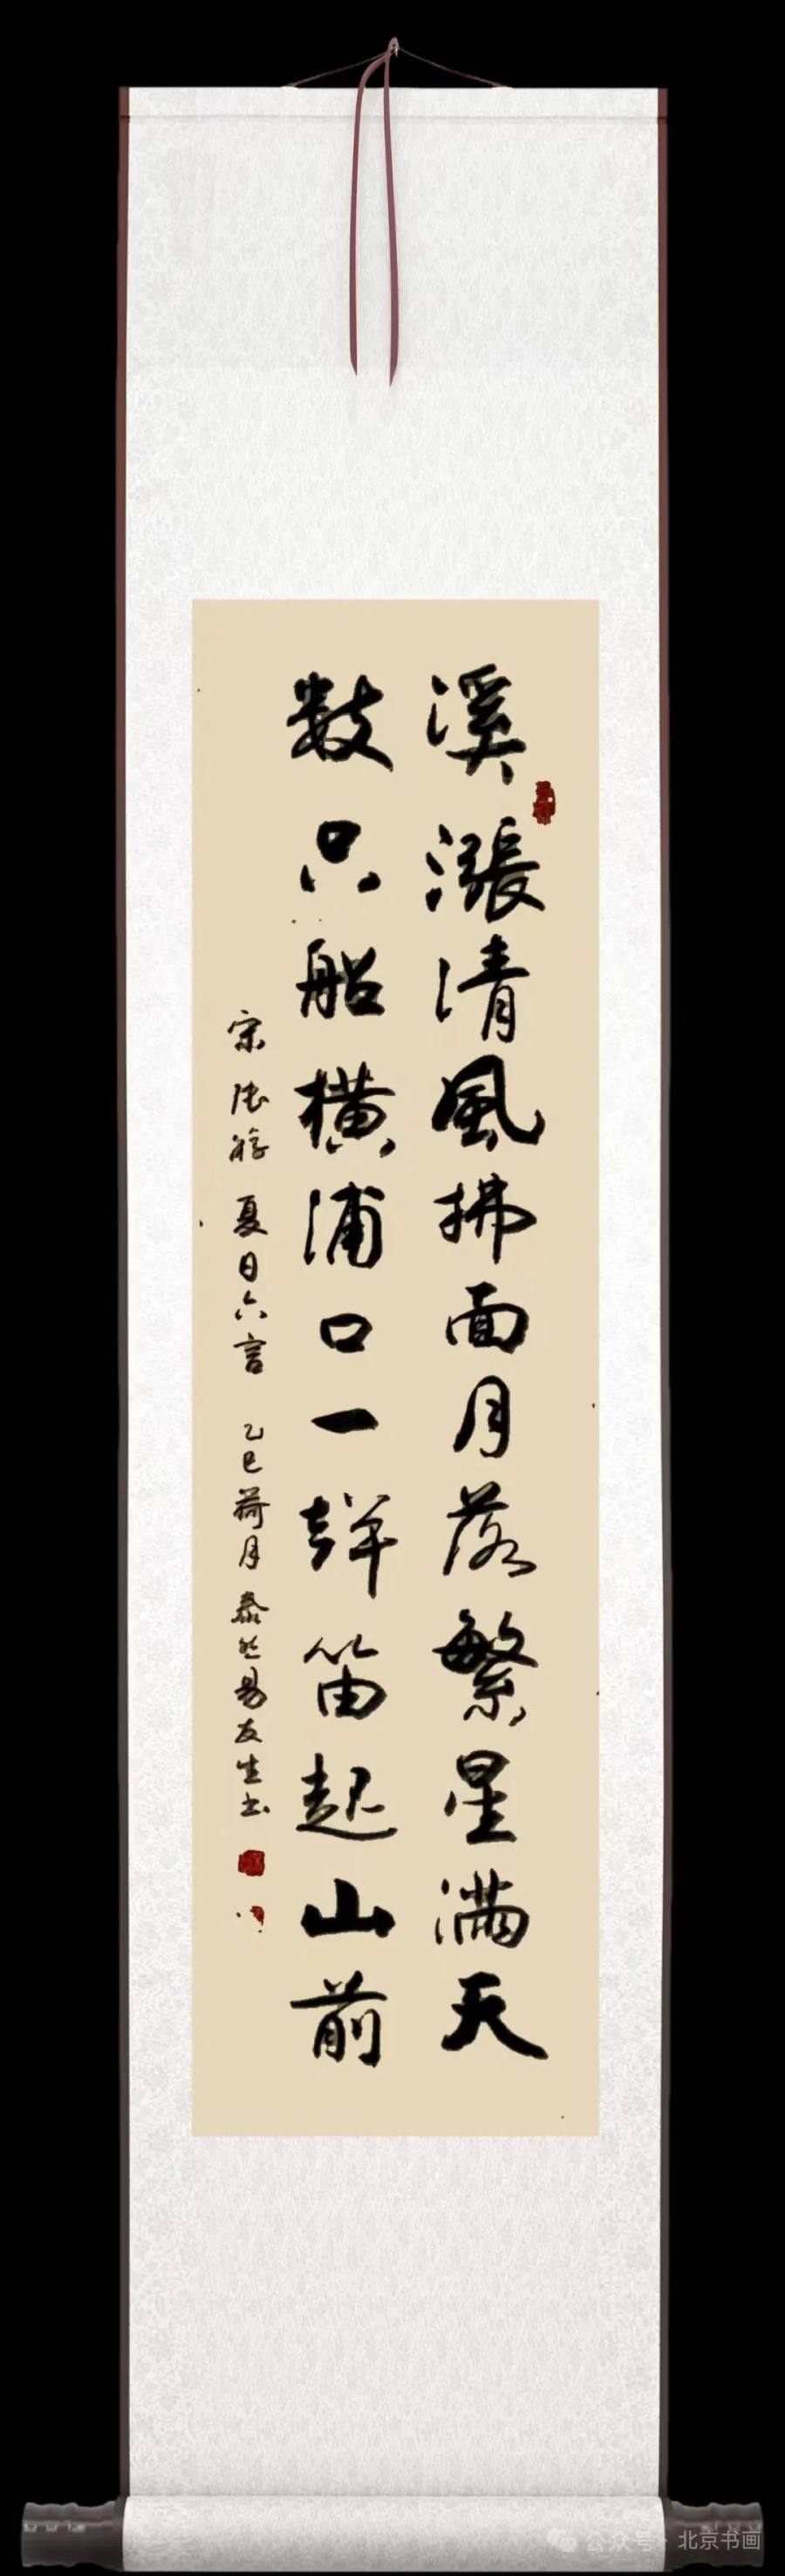 溪漲清風拂面月落繁星滿天
數只船橫浦口一聲笛起山前
宋陸游 夏日六言 乙巳荷月 泰然易友生書
公众号 · 北京书画